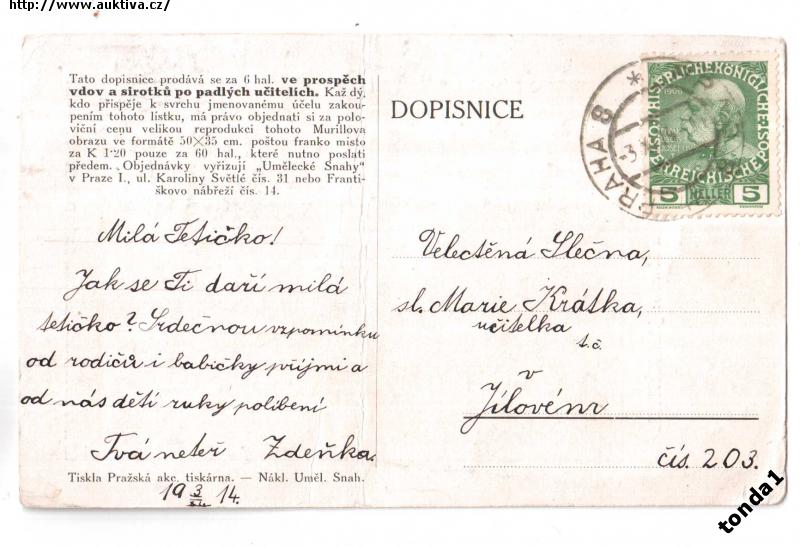 http://www.auktiva.cz/
Tato dopisnice prodává se za 6 hal. ve prospěch
vdov a sirotků po padlých učitelích. Každý,
kdo přispěje k svrchu jmenovanému účelu zakou-
pením tohoto lístku, má právo objednati si za polo-
viční cenu velikou reprodukci tohoto Murillova
obrazu ve formátě 50×35 cm. poštou franko místo
za K 1·20 pouze za 60 hal., které nutno poslati
předem. Objednávky vyřizují „Umělecké Snahy“
v Praze I., ul. Karoliny Světlé čís. 31 nebo Franti-
škovo nábřeží čís. 14.
Milá Tetičko!
Jak se Ti daří milá
tetičko? Srdečnou vzpomínku
od rodičů i babičky přijmi a
od nás dětí ruky políbení
Tvá neteř Zdeňka.
Tiskla Pražská akc. tiskárna. — Nákl. Uměl. Snah.
19 3 14.
DOPISNICE
PRAHA 8
5 HELLER 5
Velectěná Slečna,
sl. Marie Krátka,
učitelka
t.č.
v
Jílovém
čís. 203.
tonda1